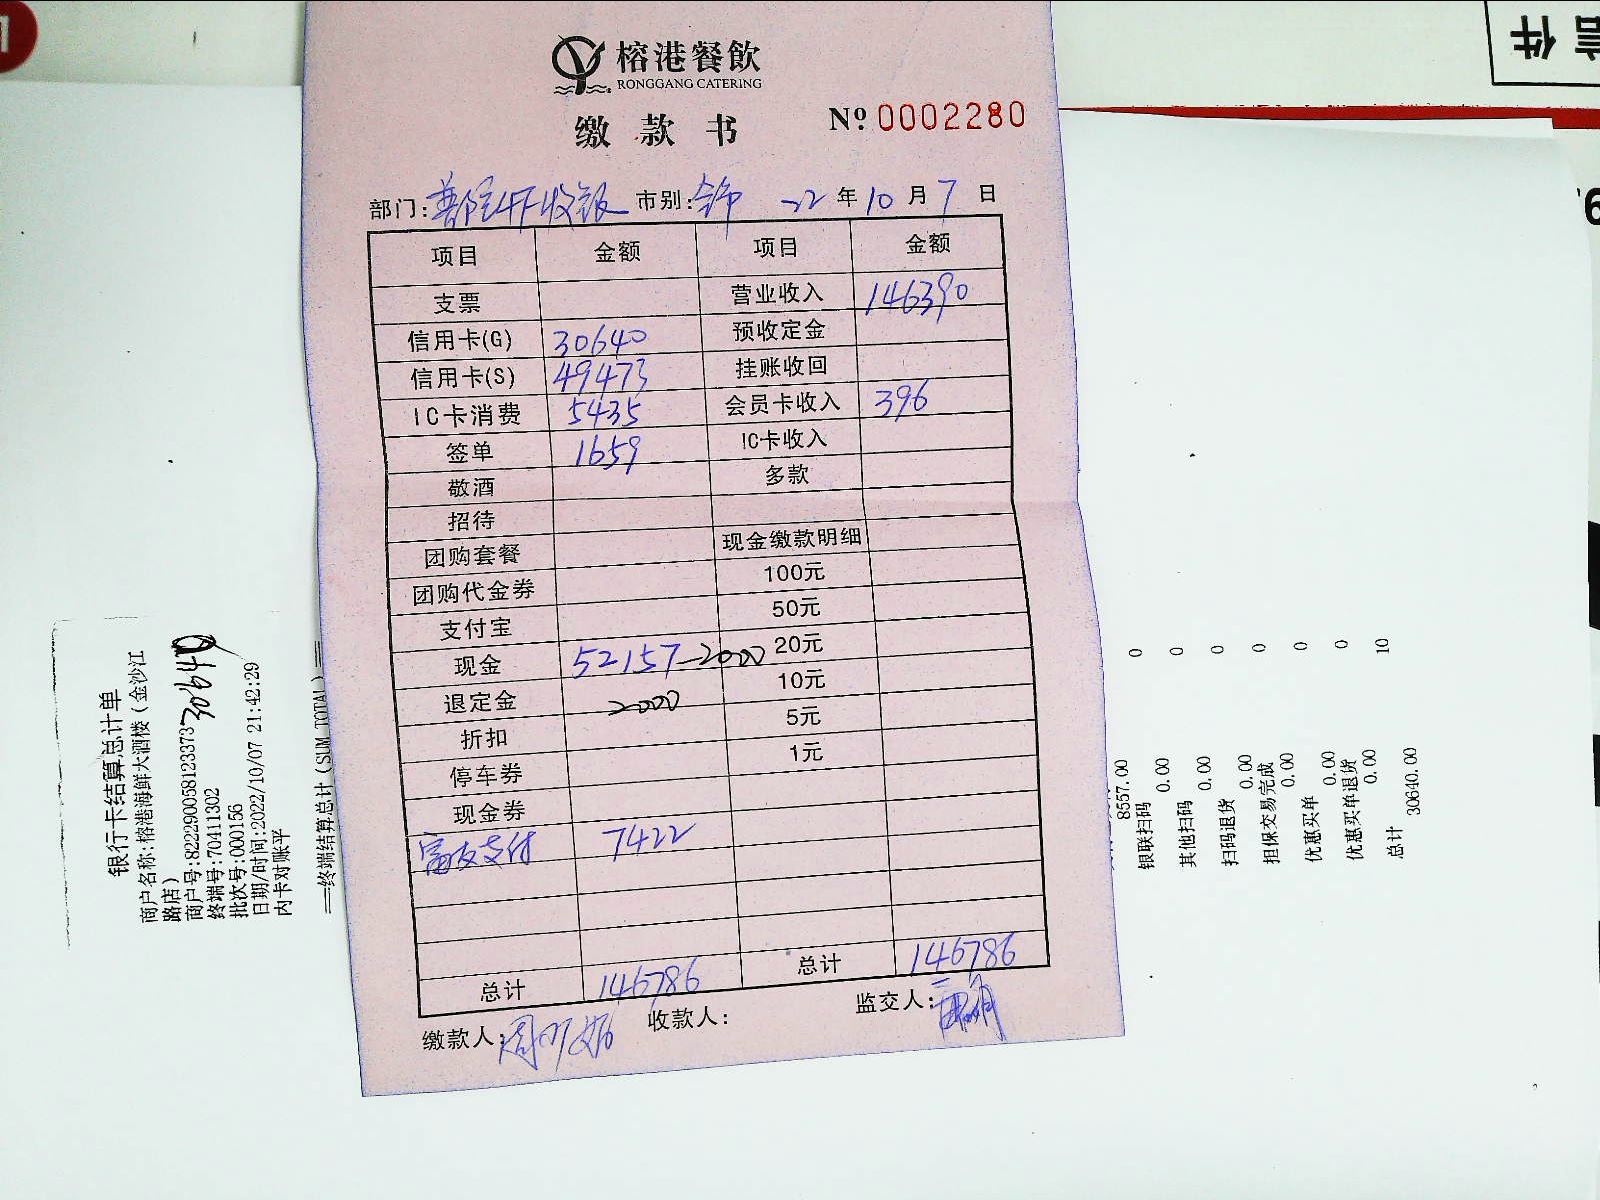 榕港餐飲
RONGGANG CATERING
缴款书
Nº 0002280
部门: 4F收银 市别: 22年10月7日
项目 金额 项目 金额
支票 营业收入 146390
信用卡(G) 30640 预收定金
信用卡(S) 49473 挂账收回
IC卡消费 5435 会员卡收入 396
签单 1659 IC卡收入
敬酒 多款
招待
团购套餐 现金缴款明细
团购代金券 100元
支付宝 50元
现金 52157-2000 20元
退定金 2000 10元
折扣 5元
停车券 1元
现金券
富友支付 7422
总计 146786 总计 146786
缴款人: 收款人: 监交人:
银行卡结算总计单
商户名称:榕港海鲜大酒楼(金沙江
路店)
商户号:822290058123373
30640
终端号:70411302
批次号:000156
日期/时间:2022/10/07 21:42:29
内卡对账平
==终端结算总计(SUM TOTAL)==
8557.00
银联扫码 0
0.00
其他扫码 0
0.00
扫码退货 0
0.00
担保交易完成 0
0.00
优惠买单 0
0.00
优惠买单退货 0
0.00
总计 10
30640.00
信件